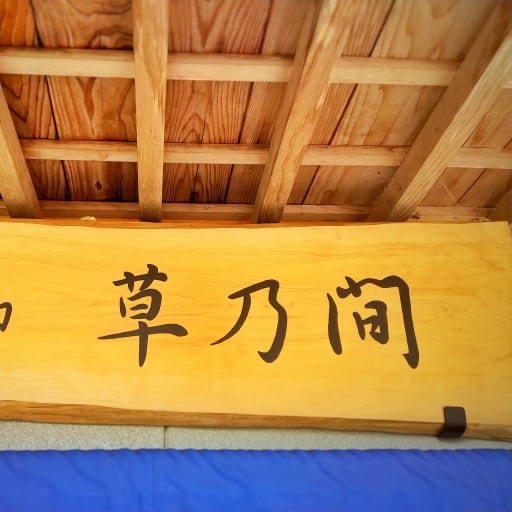 草乃間